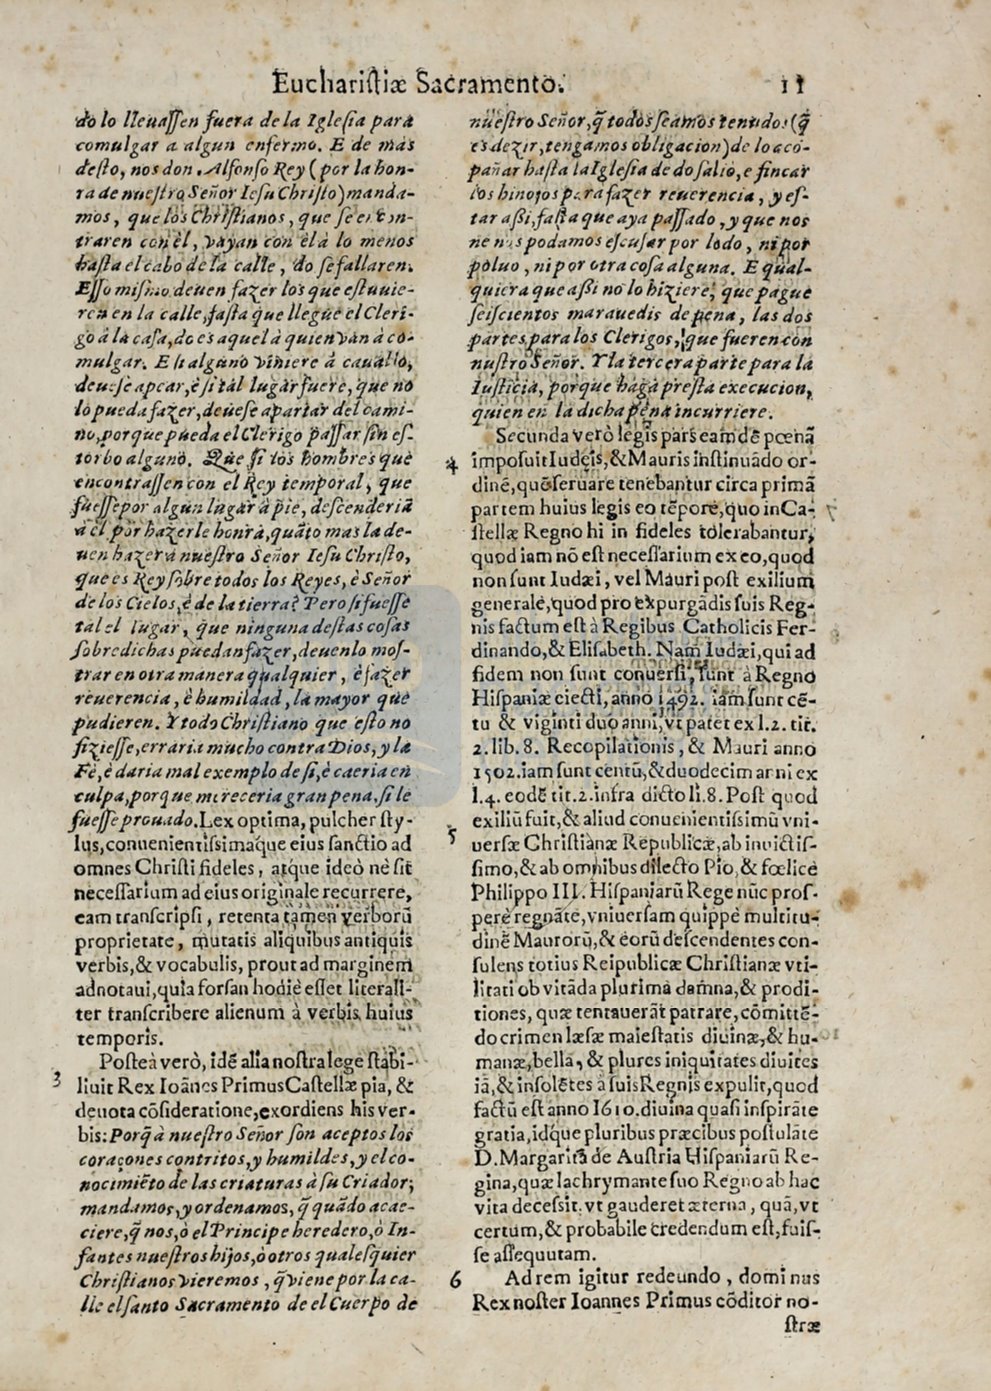 Euchariſtiæ Sacramento. 11
do lo lleuaſſen fuera de la Igleſia para
comulgar a algun enfermo. E de mas
deſto, nos don Alfonſo Rey (por la hon-
ra de nueſtro Señor Ieſu Chriſto) manda-
mos, que los Chriſtianos, que ſe encon-
traren con èl, vayan con èl à lo menos
haſta el cabo de la calle, do ſe fallaren.
Eſſo miſmo deuen fazer los que eſtuuie-
ren en la calle, faſta que llegue el Cleri-
go à la caſa, do es aquel à quien van à co-
mulgar. E ſi alguno viniere à cauallo,
deueſe apear, è ſi tal lugar fuere, que no
lo pueda fazer, deueſe apartar del cami-
no, porque pueda el Clerigo paſſar ſin eſ-
torbo alguno. Que ſi los hombres que
encontraſſen con el Rey temporal, que
fueſſe por algun lugar à pie, deſcenderiã
à èl por hazerle honra, quãto mas la de-
uen hazer à nueſtro Señor Ieſu Chriſto,
que es Rey ſobre todos los Reyes, è Señor
de los Cielos, è de la tierra? Pero ſi fueſſe
tal el lugar, que ninguna deſtas coſas
ſobredichas puedan fazer, deuenlo moſ-
trar en otra manera qualquier, è fazer
reuerencia, è humildad, la mayor que
pudieren. Y todo Chriſtiano que eſto no
fizieſſe, erraria mucho contra Dios, y la
Fè, è daria mal exemplo de ſi, è caeria en
culpa, porque mereceria gran pena, ſi le
fueſſe prouado. Lex optima, pulcher ſty-
lus, conuenientiſsimaque eius ſanctio ad
omnes Chriſti fideles, atque ideò ne ſit
neceſſarium ad eius originale recurrere,
eam tranſcripſi, retenta tamen verborũ
proprietate, mutatis aliquibus antiquis
verbis, & vocabulis, prout ad marginem
adnotaui, quia forſan hodie eſſet literali-
ter tranſcribere alienum à verbis huius
temporis.
3 Poſteà verò, idẽ alia noſtra lege ſtabi-
liuit Rex Ioãnes Primus Caſtellæ pia, &
deuota cõſideratione, exordiens his ver-
bis: Porq̃ à nueſtro Señor ſon aceptos los
coraçones contritos, y humildes, y el co-
nocimiẽto de las criaturas à ſu Criador;
mandamos, y ordenamos, q̃ quãdo acae-
ciere, q̃ nos, ò el Principe heredero, ò In-
fantes nueſtros hijos, ò otros qualeſquier
Chriſtianos vieremos, q̃ viene por la ca-
lle el ſanto Sacramento de el Cuerpo de
nueſtro Señor, q̃ todos ſeamos tenudos (q̃
es dezir, tengamos obligacion) de lo aco-
pañar haſta la Igleſia de do ſaliò, e fincar
los hinojos para fazer reuerencia, y eſ-
tar aſsi, faſta que aya paſſado, y que nos
ne nos podamos eſcuſar por lodo, ni por
poluo, ni por otra coſa alguna. E qual-
quiera que aſsi no lo hiziere, que pague
ſeiſcientos marauedis de pena, las dos
partes para los Clerigos, que fueren con
nuſtro Señor. Y la tercera parte para la
Iuſticia, porque haga preſta execucion,
quien en la dicha pena incurriere.
Secunda verò legis pars eamdẽ pœnã
4 impoſuit Iudeis, & Mauris inſtinuãdo or-
dinẽ, quẽ ſeruare tenebantur circa primã
partem huius legis eo tẽpore, quo in Ca-
ſtellæ Regno hi in fideles tolerabantur,
quod iam nõ eſt neceſſarium ex eo, quod
non ſunt Iudæi, vel Mauri poſt exilium
generale, quod pro expurgãdis ſuis Reg-
nis factum eſt à Regibus Catholicis Fer-
dinando, & Eliſabeth. Nam Iudæi, qui ad
fidem non ſunt conuerſi, ſunt à Regno
Hiſpaniæ eiecti, anno 1492. iam ſunt cẽ-
tu & viginti duo anni, vt patet ex l. 2. tit.
2. lib. 8. Recopilationis, & Mauri anno
1502. iam ſunt centũ, & duodecim anni ex
l. 4. eodẽ tit. 2. infra dicto li. 8. Poſt quod
5 exiliũ fuit, & aliud conuenientiſsimũ vni-
uerſæ Chriſtianæ Republicæ, ab inuictiſ-
ſimo, & ab omnibus dilecto Pio, & fœlice
Philippo III. Hiſpaniarũ Rege nũc proſ-
perè regnãte, vniuerſam quippè multitu-
dinẽ Maurorũ, & eorũ deſcendentes con-
ſulens totius Reipublicæ Chriſtianæ vti-
litati ob vitãda plurima damna, & prodi-
tiones, quæ tentauerãt patrare, cõmittẽ-
do crimen læſæ maieſtatis diuinæ, & hu-
manæ, bella, & plures iniquitates diuites
iã, & inſolẽtes à ſuis Regnis expulit, quod
factũ eſt anno 1610. diuina quaſi inſpirãte
gratia, idque pluribus præcibus poſtulãte
D. Margarita de Auſtria Hiſpaniarũ Re-
gina, quæ lachrymante ſuo Regno ab hac
vita deceſsit, vt gauderet æterna, quã, vt
certum, & probabile credendum eſt, fuiſ-
ſe aſſequutam.
6 Ad rem igitur redeundo, dominus
Rex noſter Ioannes Primus cõditor no-
ſtræ